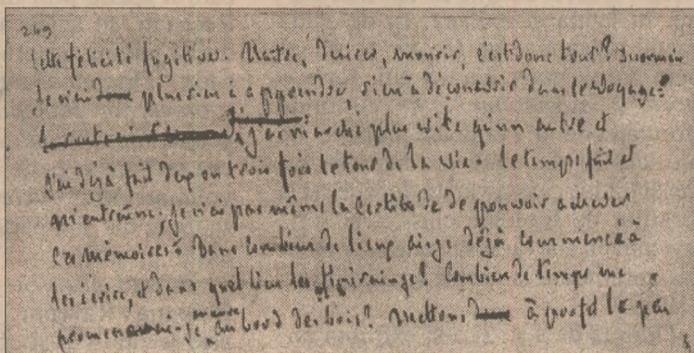 249
Cette félicité fugitive. Naître, désirer, mourir, c'est donc tout?
plus rien à apprendre, rien à découvrir dans le voyage?
j'ai marché plus vite qu'un autre et
j'ai déjà fait deux ou trois fois le tour de la vie. le temps fuit et
m'entraîne; je n'ai pas même la certitude de pouvoir achever
ces mémoires. Dans combien de lieux ai-je déjà commencé à
les écrire, et dans quel lieu les finirai-je? Combien de temps me
promenerai-je au bord des bois? Mettons à profit le peu